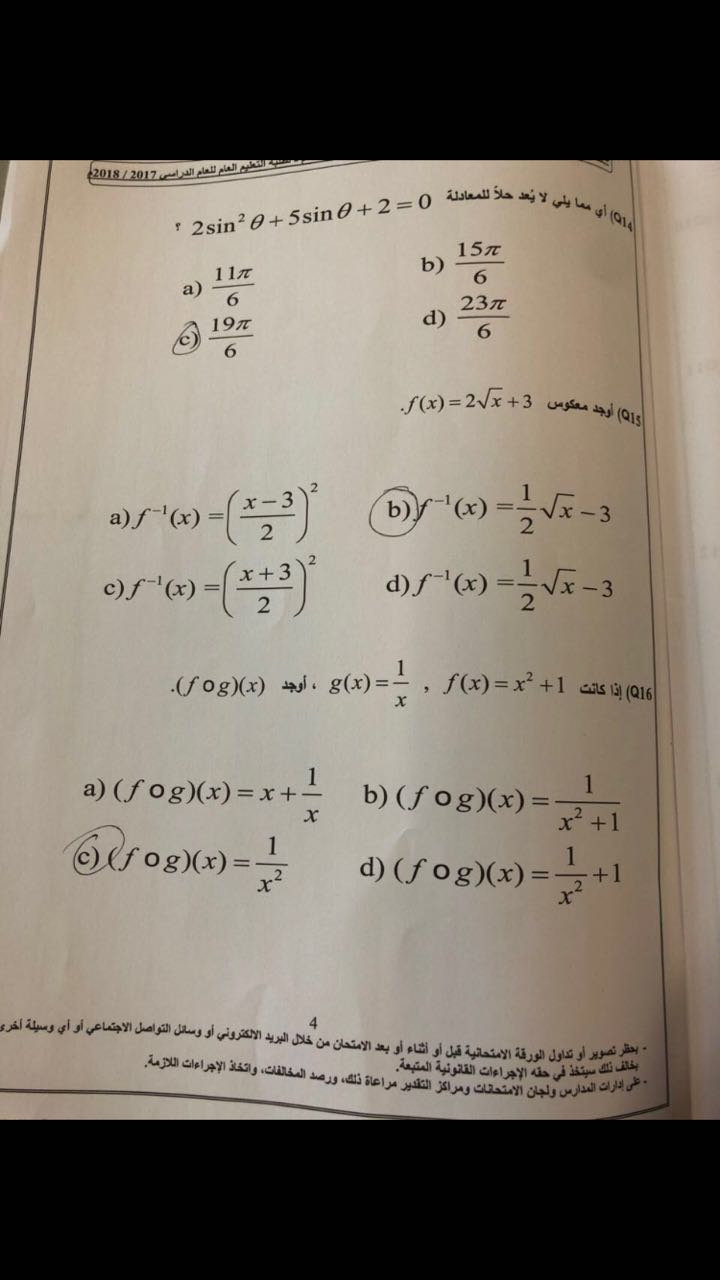 لطلبة التعليم العام للعام الدراسي 2017 / 2018م
Q14) أي مما يلي لا يُعد حلاً للمعادلة 2sin² θ + 5sin θ + 2 = 0 ؟
a) 11π/6 b) 15π/6
c) 19π/6 d) 23π/6
Q15) أوجد معكوس f(x) = 2√x + 3.
a) f⁻¹(x) = ((x − 3)/2)² b) f⁻¹(x) = 1/2 √x − 3
c) f⁻¹(x) = ((x + 3)/2)² d) f⁻¹(x) = 1/2 √x − 3
Q16) إذا كانت f(x) = x² + 1 , g(x) = 1/x ، أوجد (f o g)(x).
a) (f o g)(x) = x + 1/x b) (f o g)(x) = 1/(x² + 1)
c) (f o g)(x) = 1/x² d) (f o g)(x) = 1/x² + 1
4
- يحظر تصوير أو تداول الورقة الامتحانية قبل أو أثناء أو بعد الامتحان من خلال البريد الالكتروني أو وسائل التواصل الاجتماعي أو أي وسيلة أخرى
يخالف ذلك سيتخذ في حقه الإجراءات القانونية المتبعة.
- على إدارات المدارس ولجان الامتحانات ومراكز التقدير مراعاة ذلك، ورصد المخالفات، واتخاذ الإجراءات اللازمة.